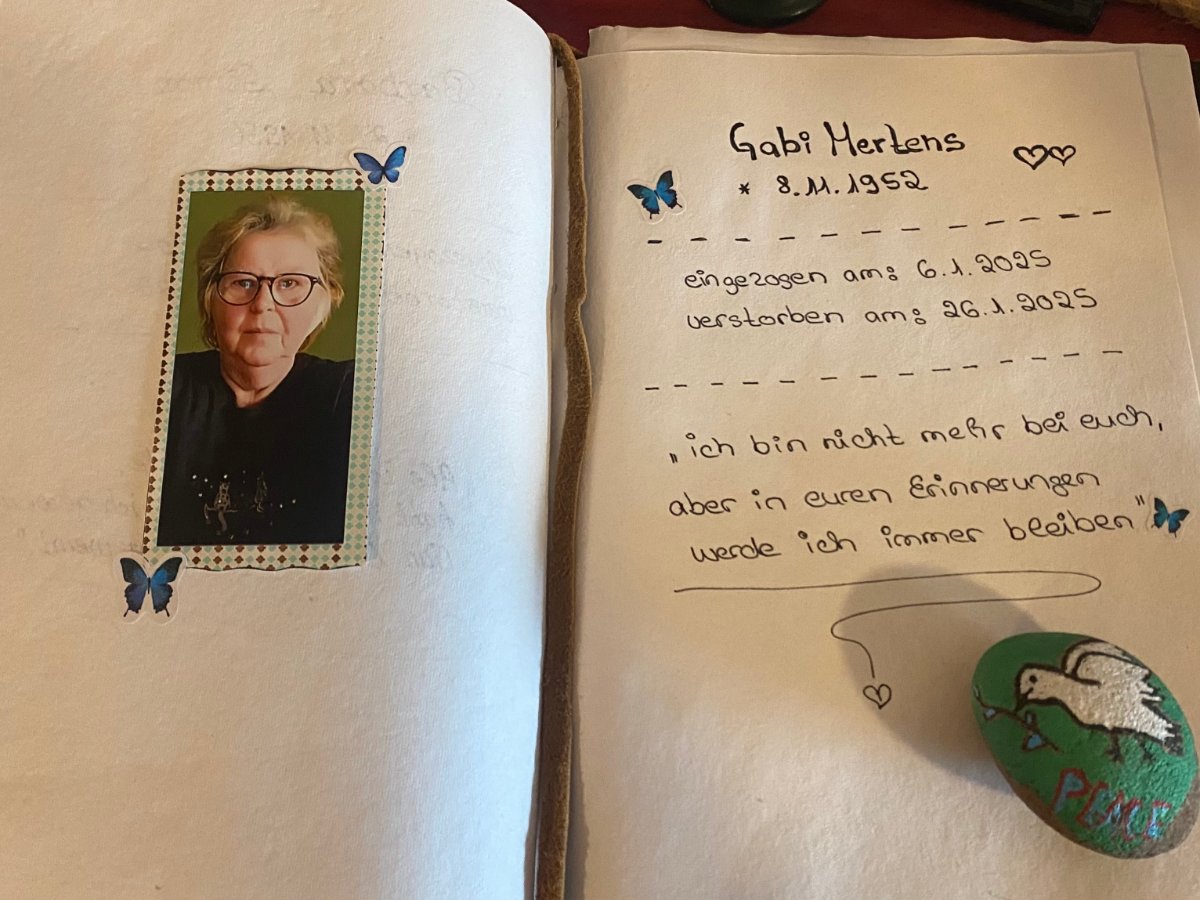 Gabi Mertens
* 8.11.1952
eingezogen am: 6.1.2025
verstorben am: 26.1.2025
„ich bin nicht mehr bei euch,
aber in euren Erinnerungen
werde ich immer bleiben"
PEACE